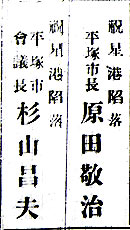 祝星港陥落
平塚市長 原田敬治
祝星港陥落
平塚市會議長 杉山昌夫